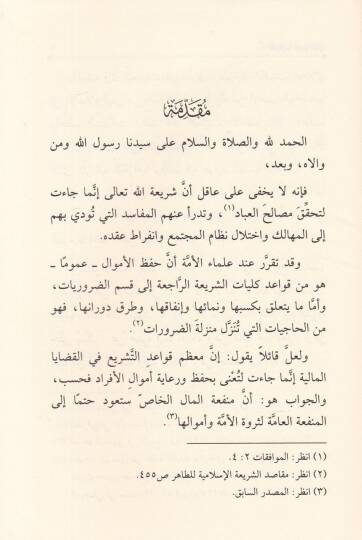 مُقَدِّمَة
الحمد لله والصلاة والسلام على سيدنا رسول الله ومن
والاه، وبعد،
فإنه لا يخفى على عاقل أنَّ شريعة الله تعالى إنَّما جاءت
لتحقِّقَ مصالحَ العباد(١)، وتدرأ عنهم المفاسد التي تُودي بهم
إلى المهالك واختلال نظام المجتمع وانفراط عقده.
وقد تقرَّر عند علماء الأمَّة أنَّ حفظ الأموال ـ عمومًا ـ
هو من قواعد كليات الشريعة الرَّاجعة إلى قسم الضروريات،
وأمَّا ما يتعلق بكسبها ونمائها وإنفاقها، وطرق دورانها، فهو
من الحاجيات التي تُنَزَّل منزلةَ الضرورات(٢).
ولعلَّ قائلاً يقول: إنَّ معظم قواعدِ التَّشريع في القضايا
المالية إنَّما جاءت لتُعْنى بحفظ ورعاية أموالِ الأفراد فحسب،
والجواب هو: أنَّ منفعة المال الخاصّ ستعود حتمًا إلى
المنفعة العامَّة لثروة الأمَّة وأموالها(٣).
(١) انظر: الموافقات ٢: ٤.
(٢) انظر: مقاصد الشريعة الإسلامية للطاهر ص٤٥٥.
(٣) انظر: المصدر السابق.